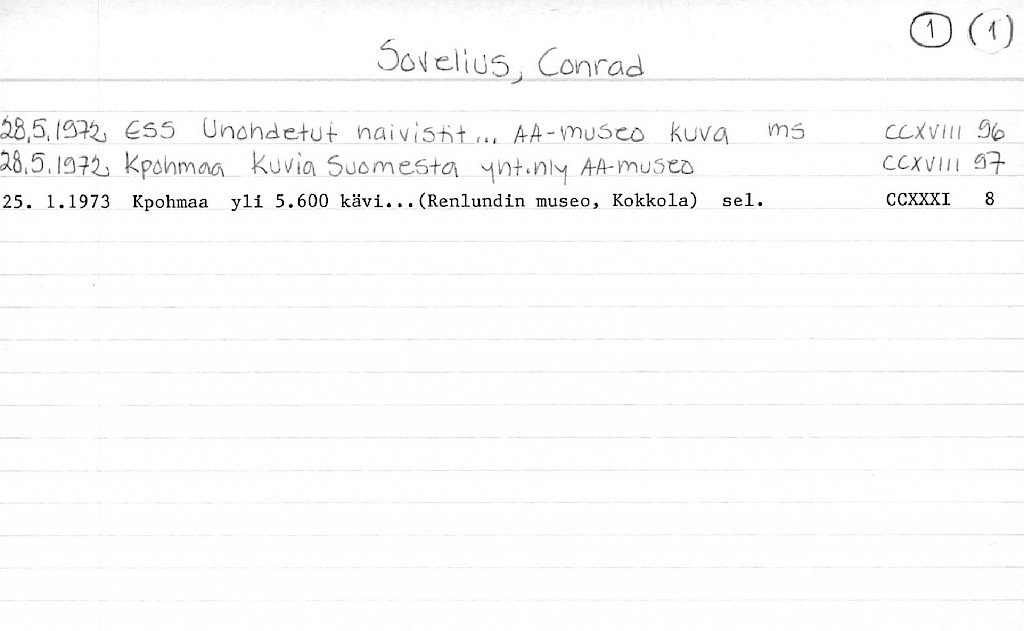 1 (1)
Sovelius, Conrad
28.5.1972 ESS Unohdetut naivistit... AA-museo kuva ms CCXVIII 96
28.5.1972 Kpohmaa Kuvia Suomesta ynt.nly AA-museo CCXVIII 97
25. 1.1973 Kpohmaa yli 5.600 kävi...(Renlundin museo, Kokkola) sel. CCXXXI 8